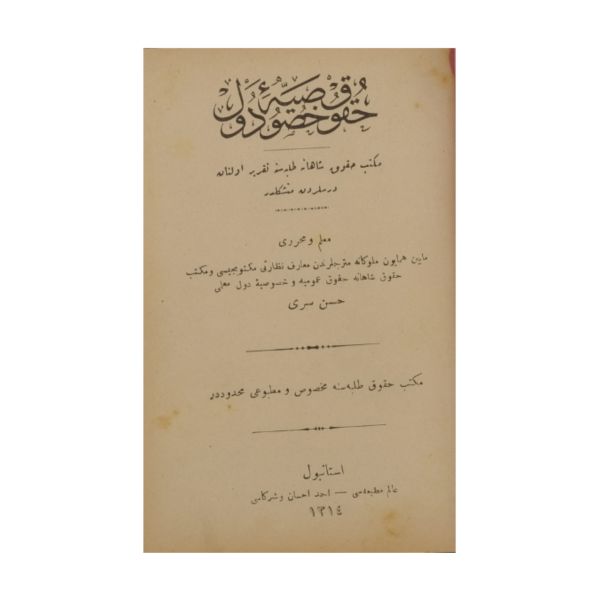 حقوق خصوصیهٔ دول
مکتب حقوق شاهانه طلبه‌سنه تقریر اولنان
درسلردن متشکلدر
معلم و محرری
مابین همایون ملوکانه مترجملرندن معارف نظارتی مکتوبجیسی و مکتب
حقوق شاهانه حقوق عمومیه و خصوصیهٔ دول معلمی
حسن سری
مکتب حقوق طلبه‌سنه مخصوص و مطبوعی محدوددر
استانبول
عالم مطبعه‌سی — احمد احسان و شرکاسی
۱۳۱٤